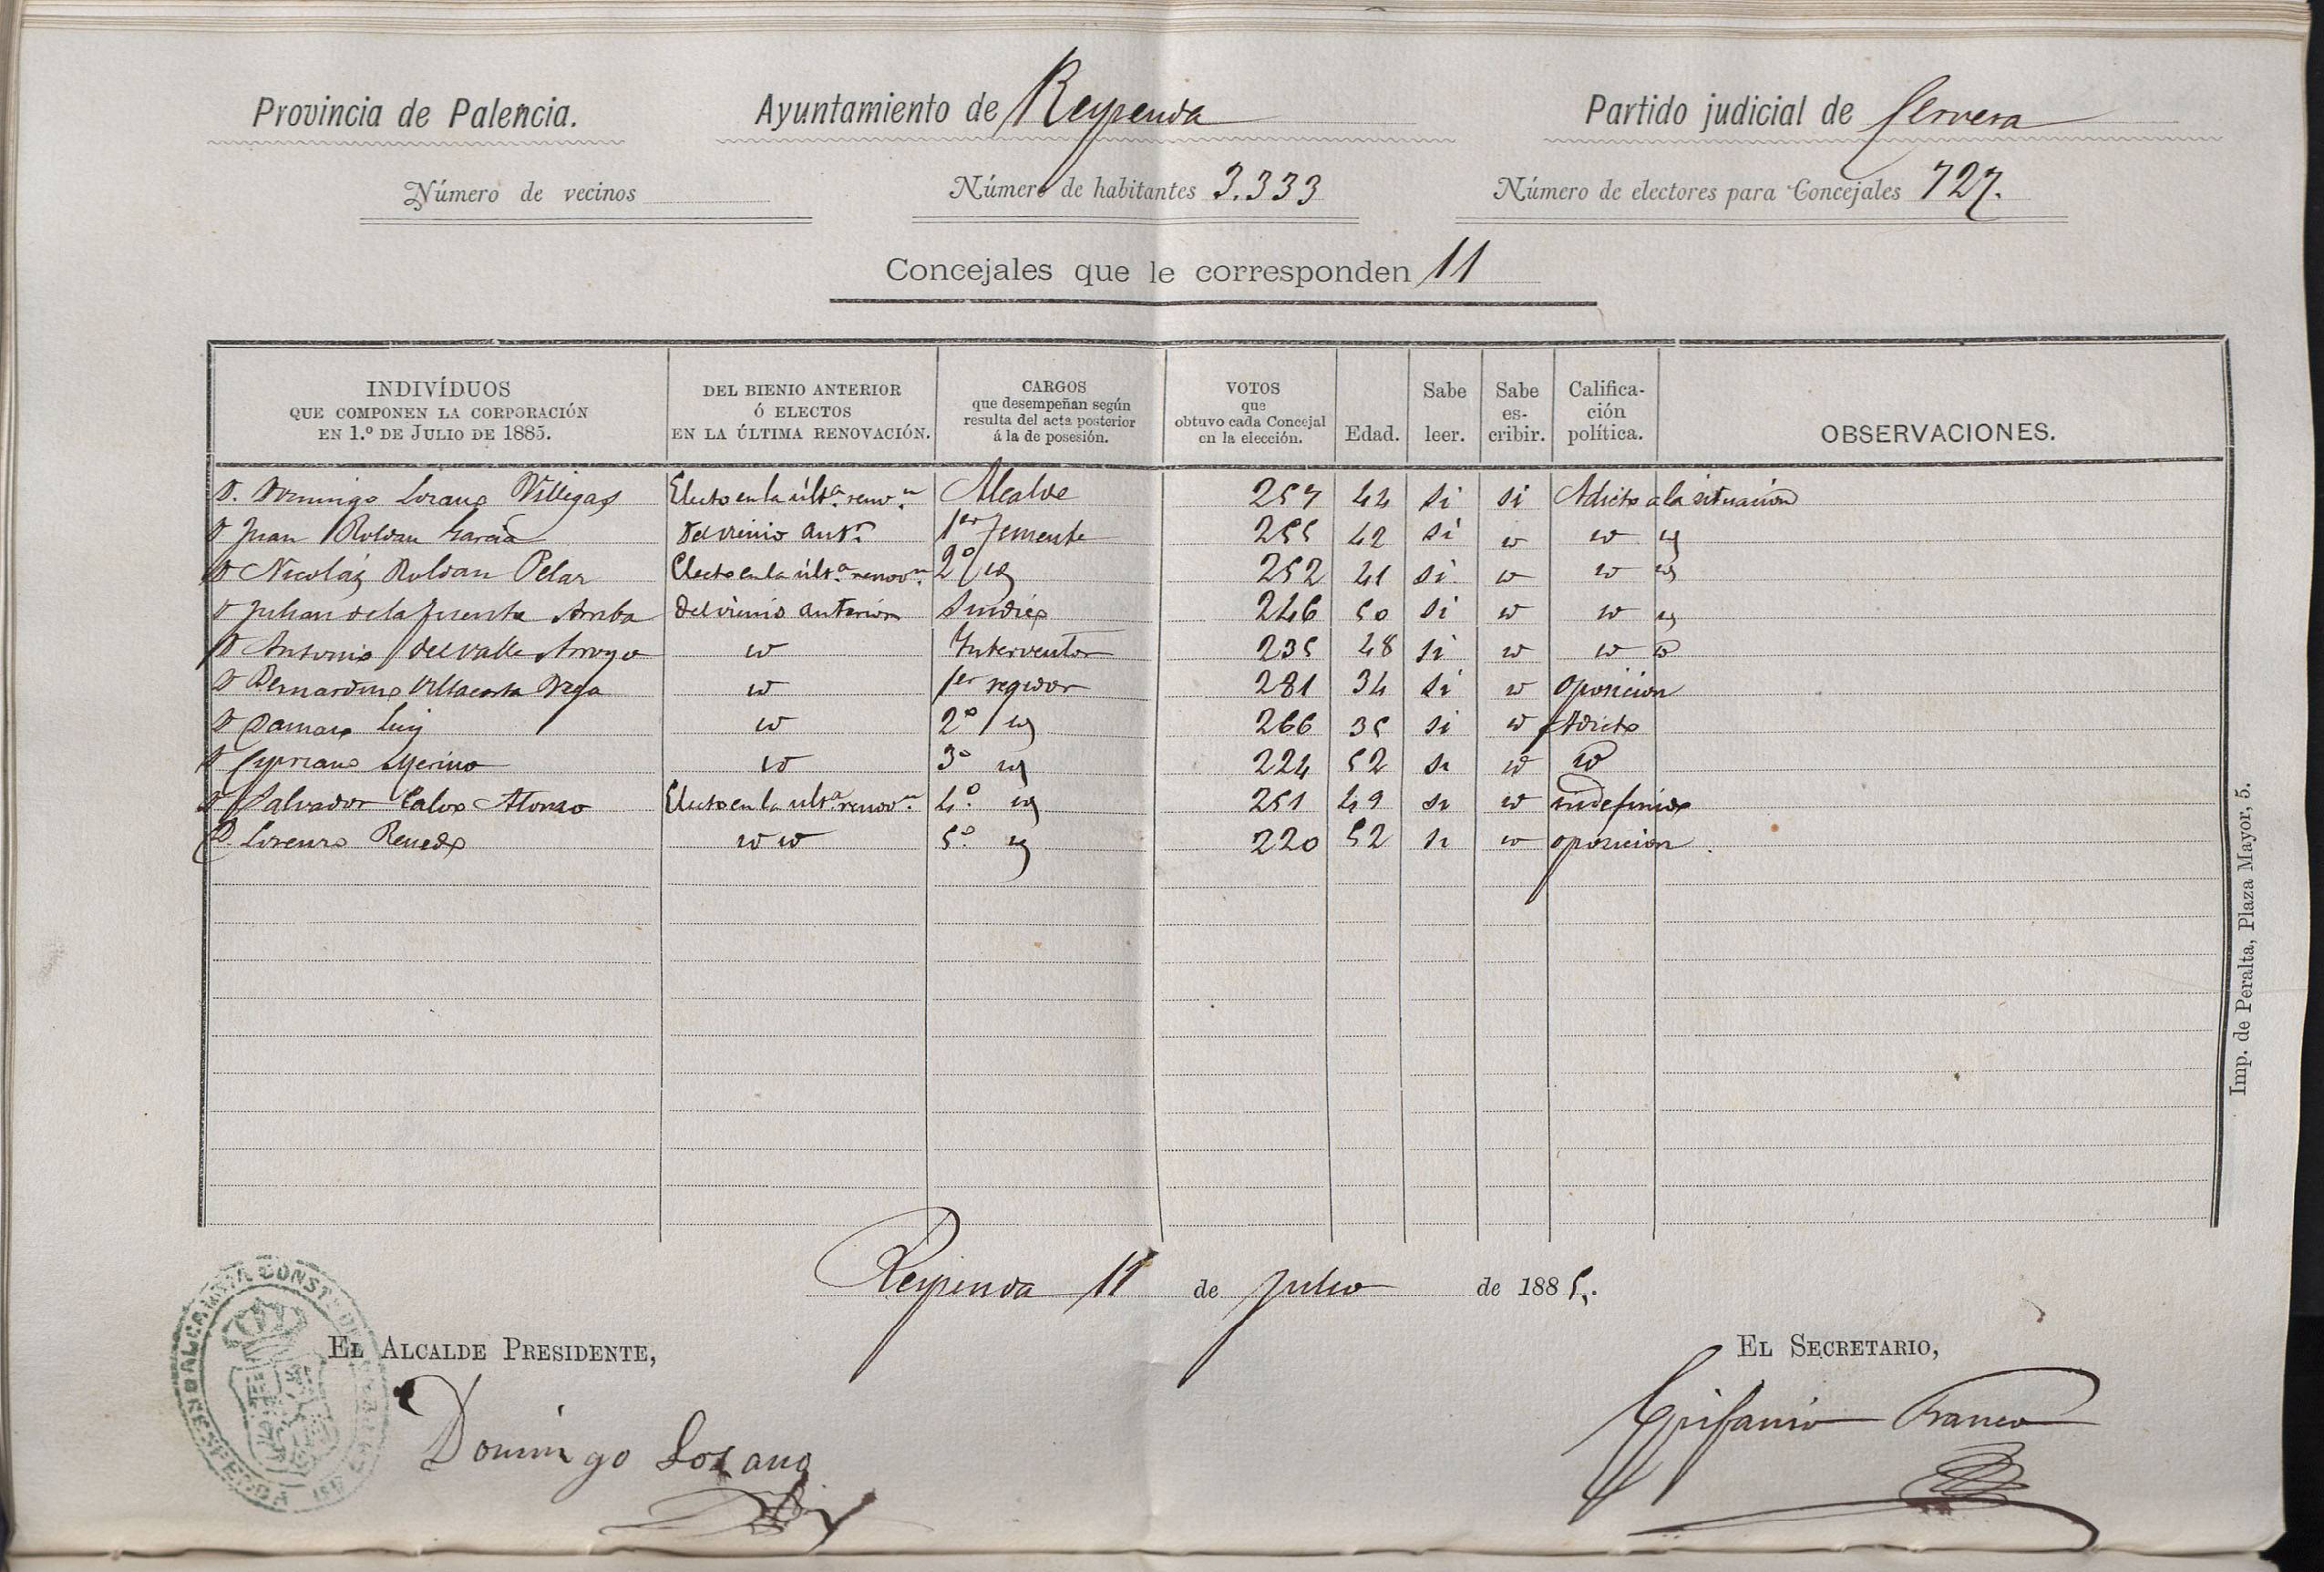 Provincia de Palencia. Ayuntamiento de Respenda Partido judicial de Cervera
Número de vecinos Número de habitantes 3.333 Número de electores para Concejales 727.
Concejales que le corresponden 11
INDIVÍDUOS QUE COMPONEN LA CORPORACIÓN EN 1.º DE JULIO DE 1885. DEL BIENIO ANTERIOR Ó ELECTOS EN LA ÚLTIMA RENOVACIÓN. CARGOS que desempeñan según resulta del acta posterior á la de posesión. VOTOS que obtuvo cada Concejal en la elección. Edad. Sabe leer. Sabe es-cribir. Califica-ción política. OBSERVACIONES.
D. Domingo Lozano Villegas Electo en la últ.ª renov.n Alcalde 257 44 si si Adicto a la situacion
D Juan Roldan Garcia del vienio ant.r 1er Teniente 255 42 si id id id
D Nicolás Roldan Pelaz Electo en la últ.ª renov.n 2º id 252 41 si id id id
D Julian de la fuente Arriba del vienio anterior Sindico 246 50 si id id id
D Antonio del valle Arroyo id Interventor 235 48 si id id id
D Bernardino Villacorta Vega id 1er regidor 281 34 si id oposicion
D Damaso Luis id 2º id 266 35 si id Adicto
D Cipriano Merino id 3º id 224 52 si id id
D Salvador Calvo Alonso Electo en la ult.ª renov.n 4º id 251 49 si id indefinido
D. Lorenzo Renedo id id 5º id 220 52 si id oposicion.
Imp. de Peralta, Plaza Mayor, 5.
Respenda 11 de Julio de 1885.
EL ALCALDE PRESIDENTE, EL SECRETARIO,
Domingo Lozano Epifanio Franco
ALCALDIA CONST DE RESPENDA